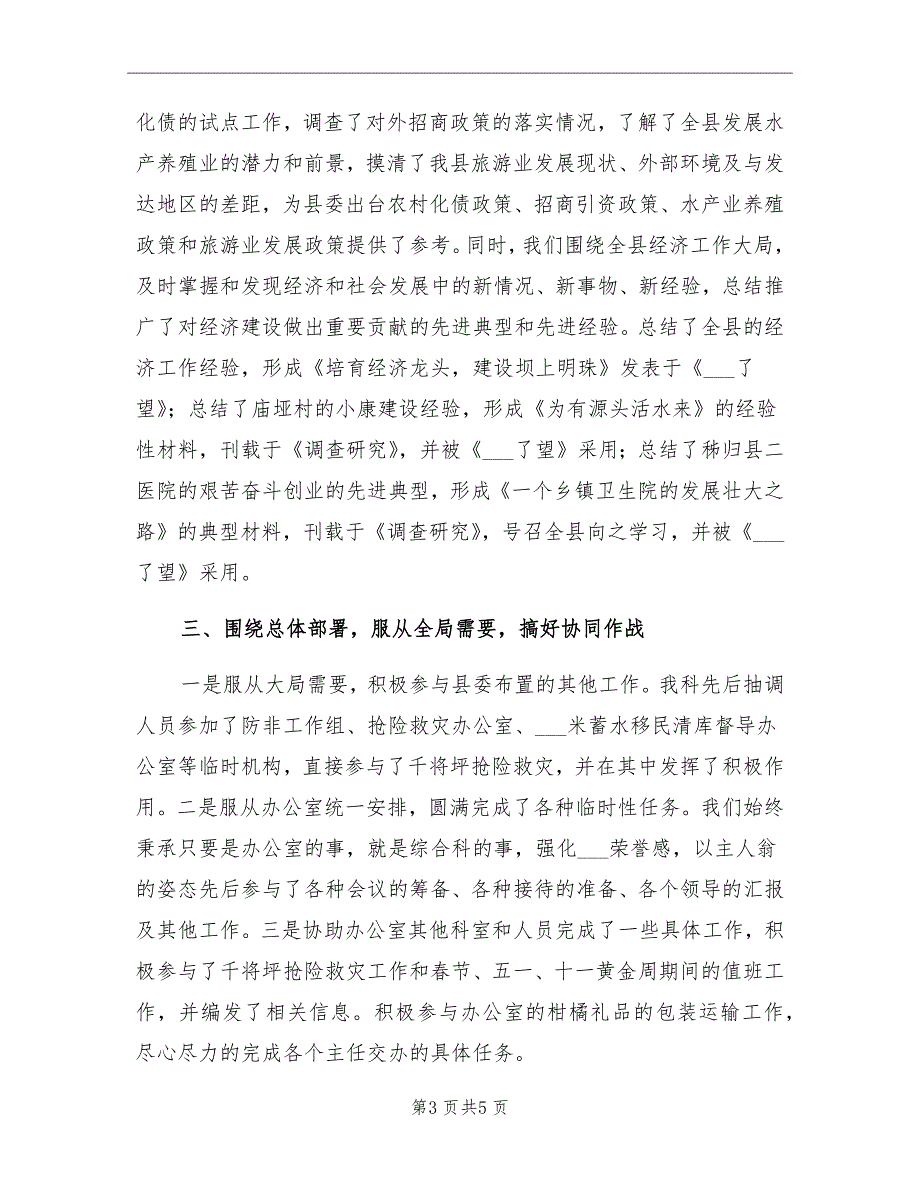 化债的试点工作，调查了对外招商政策的落实情况，了解了全县发展水
产养殖业的潜力和前景，摸清了我县旅游业发展现状、外部环境及与发
达地区的差距，为县委出台农村化债政策、招商引资政策、水产业养殖
政策和旅游业发展政策提供了参考。同时，我们围绕全县经济工作大局，
及时掌握和发现经济和社会发展中的新情况、新事物、新经验，总结推
广了对经济建设做出重要贡献的先进典型和先进经验。总结了全县的经
济工作经验，形成《培育经济龙头，建设坝上明珠》发表于《___了
望》；总结了庙垭村的小康建设经验，形成《为有源头活水来》的经验
性材料，刊载于《调查研究》，并被《___了望》采用；总结了秭归县二
医院的艰苦奋斗创业的先进典型，形成《一个乡镇卫生院的发展壮大之
路》的典型材料，刊载于《调查研究》，号召全县向之学习，并被《___
了望》采用。
三、围绕总体部署，服从全局需要，搞好协同作战
一是服从大局需要，积极参与县委布置的其他工作。我科先后抽调
人员参加了防非工作组、抢险救灾办公室、___米蓄水移民清库督导办
公室等临时机构，直接参与了千将坪抢险救灾，并在其中发挥了积极作
用。二是服从办公室统一安排，圆满完成了各种临时性任务。我们始终
秉承只要是办公室的事，就是综合科的事，强化___荣誉感，以主人翁
的姿态先后参与了各种会议的筹备、各种接待的准备、各个领导的汇报
及其他工作。三是协助办公室其他科室和人员完成了一些具体工作，积
极参与了千将坪抢险救灾工作和春节、五一、十一黄金周期间的值班工
作，并编发了相关信息。积极参与办公室的柑橘礼品的包装运输工作，
尽心尽力的完成各个主任交办的具体任务。
第3 页共5 页